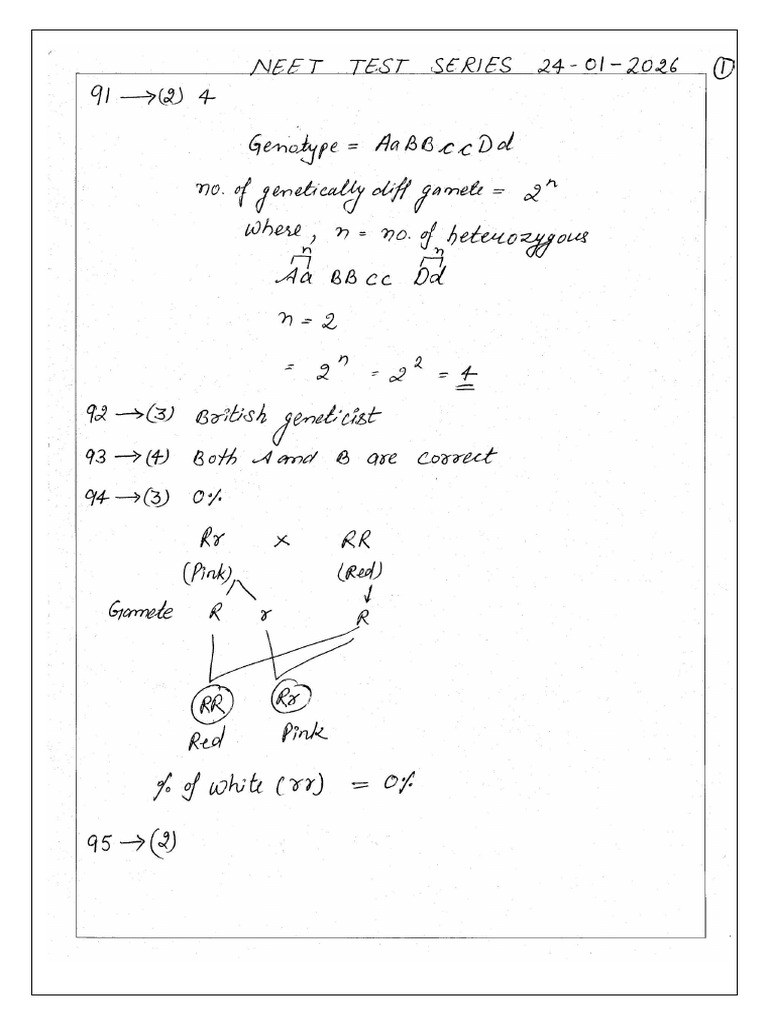 NEET TEST SERIES 24-01-2026 ①
91 → (2) 4
Genotype = AaBBccDd
no. of genetically diff gamete = 2ⁿ
where, n = no. of heterozygous
n n
Aa BB cc Dd
n = 2
= 2ⁿ = 2² = 4
92 → (3) British geneticist
93 → (4) Both A and B are correct
94 → (3) 0%
Rr × RR
(Pink) (Red)
Gamete R r R
RR Rr
Red Pink
% of white (rr) = 0%
95 → (2)